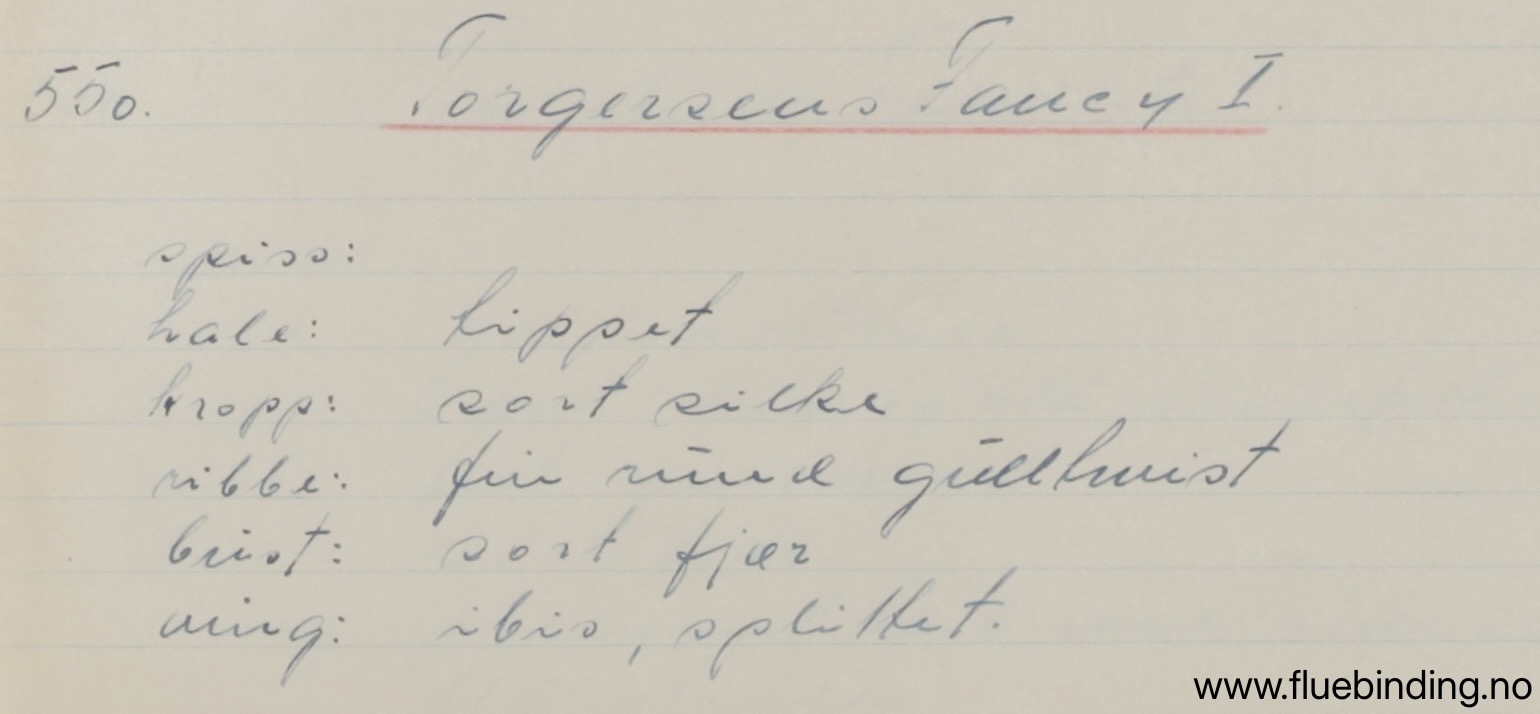 550. Torgersens Fancy I.
spiss:
hale: tippet
kropp: sort silke
ribbe: fin rund gulltwist
brist: sort fjær
ving: ibis, splittet.
www.fluebinding.no